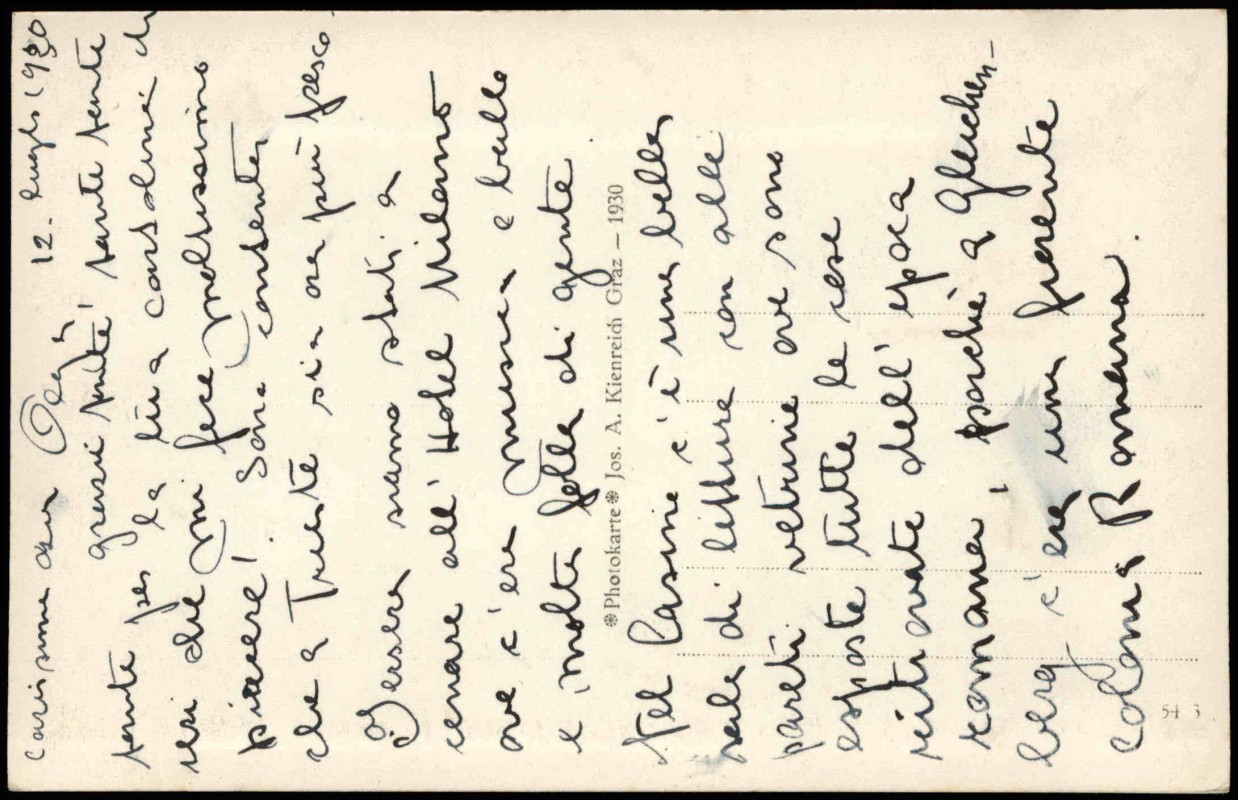 carissima cara Olga 12. Luglio 1930
grazie tante, tante tante
tante per la tua cartolina di
ieri che mi fece moltissimo
piacere! Sarai contenta
che a Trieste sia ora più fresco
Jersera siamo stati a
cenare all' Hotel Milano
ove c'era musica e bella
e molta folla di gente
❋Photokarte❋ Jos. A. Kienreich Graz – 1930
Nel Casino c'è una bella
sala di lettura con alle
pareti vetrine ove sono
esposte tutte le cose
ritrovate dell' epoca
romana! poichè a Gleichen-
berg c'era una fiorente
colonia Romana.